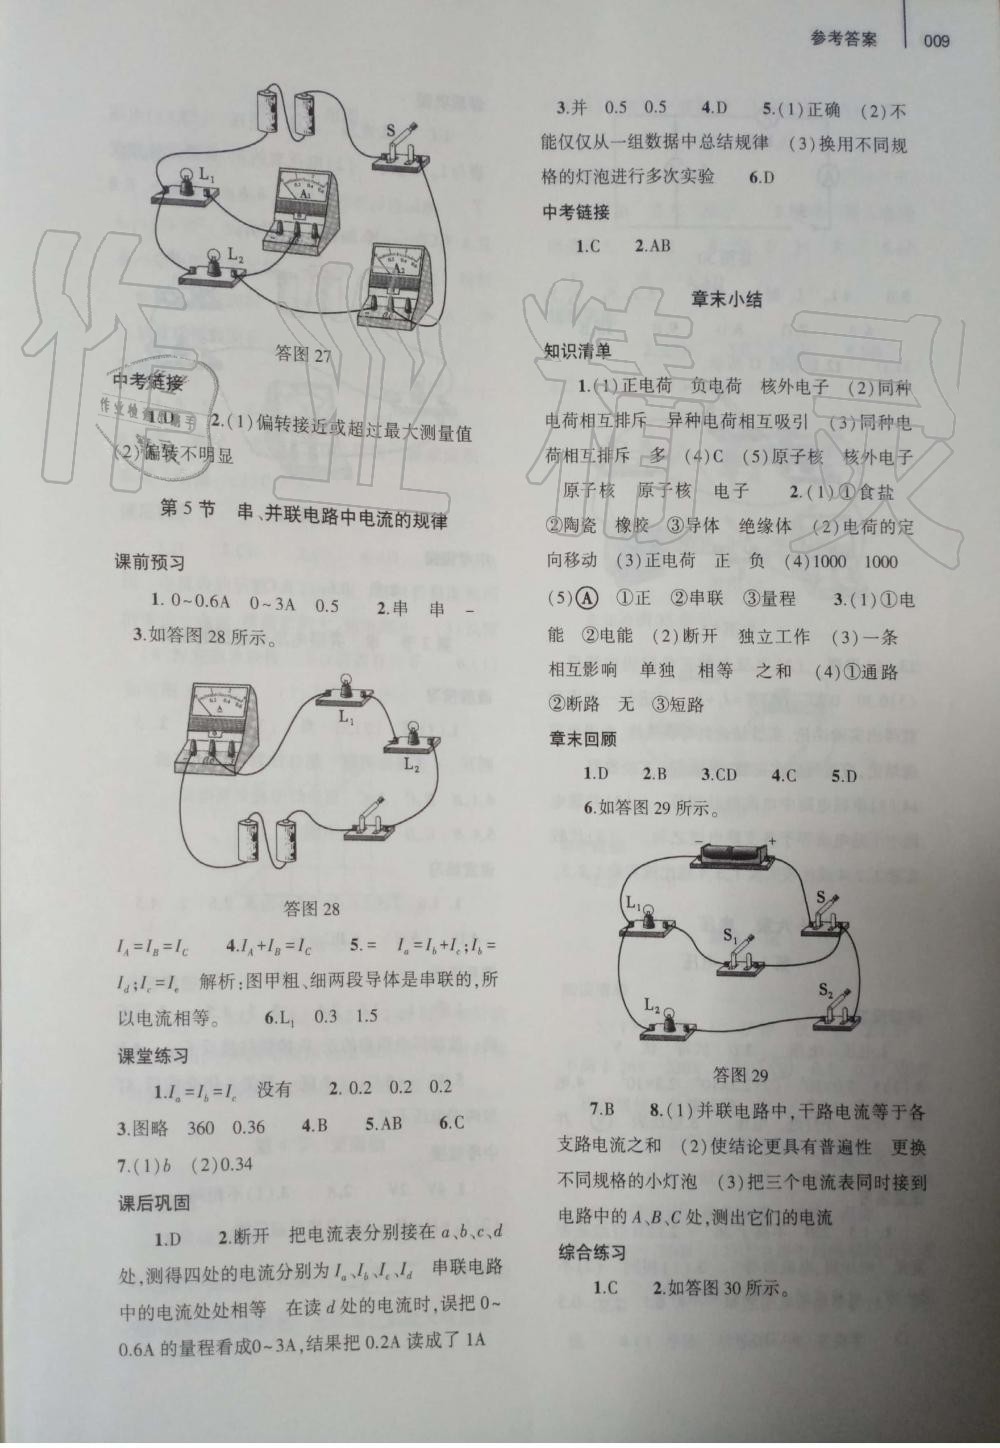 参考答案 009
S
L₁
A₁
L₂
A₂
答图27
中考链接
1.D 2.(1)偏转接近或超过最大测量值
(2)偏转不明显
第5节 串、并联电路中电流的规律
课前预习
1. 0~0.6A 0~3A 0.5 2.串 串 -
3.如答图28所示。
L₁
L₂
答图28
I_A=I_B=I_C 4.I_A+I_B=I_C 5.= I_a=I_b+I_c;I_b=
I_d;I_c=I_e 解析:图甲粗、细两段导体是串联的,所
以电流相等。 6.L₁ 0.3 1.5
课堂练习
1.I_a=I_b=I_c 没有 2. 0.2 0.2 0.2
3.图略 360 0.36 4.B 5.AB 6.C
7.(1)b (2)0.34
课后巩固
1.D 2.断开 把电流表分别接在a、b、c、d
处,测得四处的电流分别为I_a、I_b、I_c、I_d 串联电路
中的电流处处相等 在读d处的电流时,误把0~
0.6A的量程看成0~3A,结果把0.2A读成了1A
3.并 0.5 0.5 4.D 5.(1)正确 (2)不
能仅仅从一组数据中总结规律 (3)换用不同规
格的灯泡进行多次实验 6.D
中考链接
1.C 2.AB
章末小结
知识清单
1.(1)正电荷 负电荷 核外电子 (2)同种
电荷相互排斥 异种电荷相互吸引 (3)同种电
荷相互排斥 多 (4)C (5)原子核 核外电子
原子核 原子核 电子 2.(1)①食盐
②陶瓷 橡胶 ③导体 绝缘体 (2)电荷的定
向移动 (3)正电荷 正 负 (4)1000 1000
(5)Ⓐ ①正 ②串联 ③量程 3.(1)①电
能 ②电能 (2)断开 独立工作 (3)一条
相互影响 单独 相等 之和 (4)①通路
②断路 无 ③短路
章末回顾
1.D 2.B 3.CD 4.C 5.D
6.如答图29所示。
- +
L₁
S
S₁
L₂
S₂
答图29
7.B 8.(1)并联电路中,干路电流等于各
支路电流之和 (2)使结论更具有普遍性 更换
不同规格的小灯泡 (3)把三个电流表同时接到
电路中的A、B、C处,测出它们的电流
综合练习
1.C 2.如答图30所示。
作业精灵